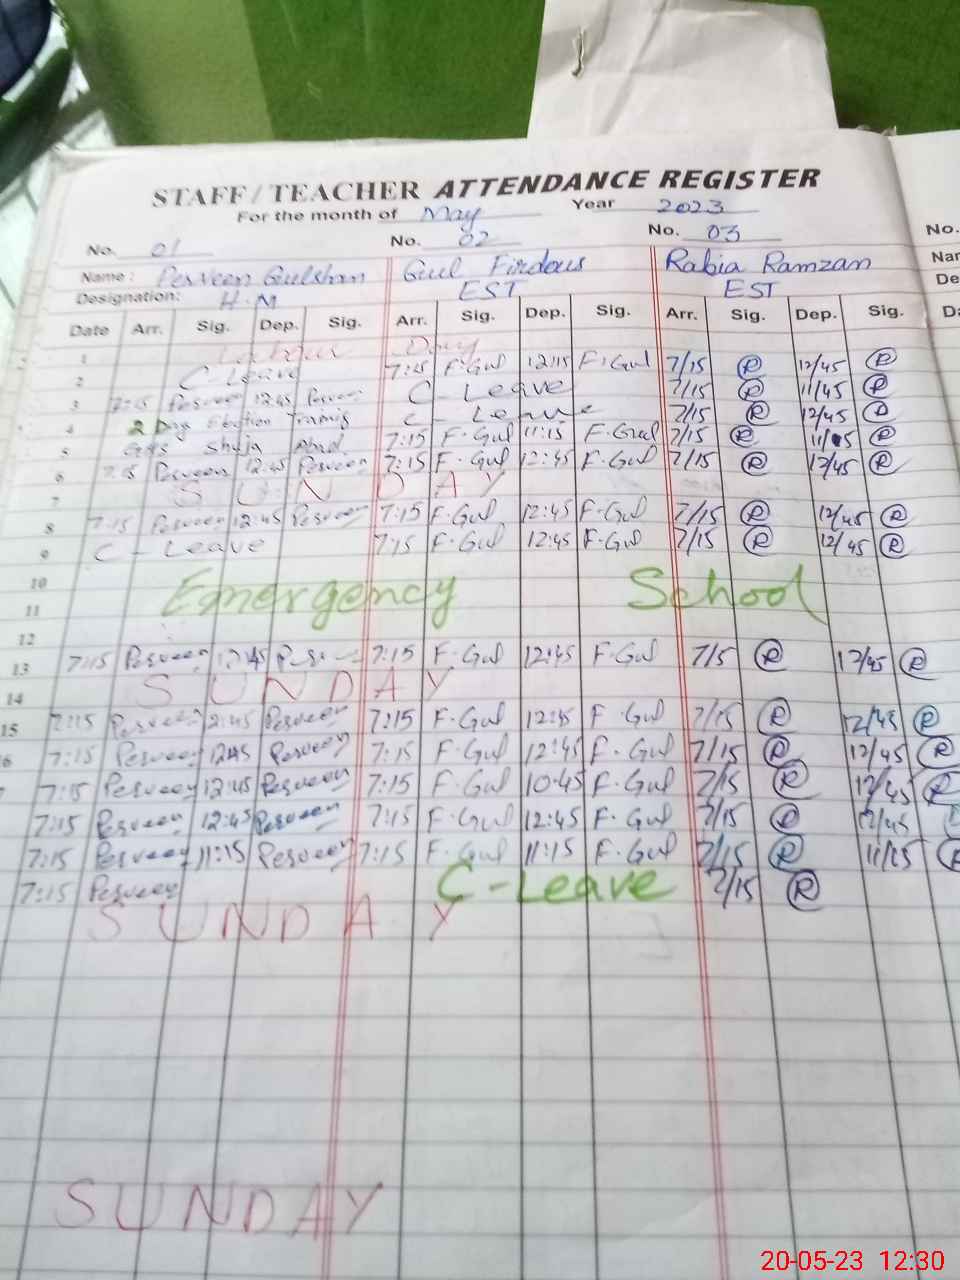 STAFF / TEACHER ATTENDANCE REGISTER
For the month of May Year 2023
No. 01 No. 02 No. 03 No.
Name: Perveen Gulshan Gul Firdous Rabia Ramzan Nar
Designation: H.M EST EST De
Date Arr. Sig. Dep. Sig. Arr. Sig. Dep. Sig. Arr. Sig. Dep. Sig. Da
1 Labour Day
2 C-Leave 7:15 F.Gul 12:15 F.Gul 7/15 R 12/45 R
3 7:15 Perveen 12:45 Perveen C-Leave 7/15 R 11/45 R
4 2 Day Election Training C-Leave 7/15 R 12/45 R
5 Shuja Abad 7:15 F.Gul 11:15 F.Gul 7/15 R R
6 7:15 Perveen 12:45 Perveen 7:15 F.Gul 12:45 F.Gul 7/15 R 12/45 R
7 SUNDAY
8 7:15 Perveen 12:45 Perveen 7:15 F.Gul 12:45 F.Gul 7/15 R 12/45 R
9 C-Leave 7:15 F.Gul 12:45 F.Gul 7/15 R 12/45 R
10
11 Emergency School
12
13 7:15 Perveen 12:45 7:15 F.Gul 12:45 F.Gul 7/15 R 12/45 R
14 SUNDAY
15 7:15 Perveen 12:45 Perveen 7:15 F.Gul 12:45 F.Gul 7/15 R 12/45 R
6 7:15 Perveen 12:45 Perveen 7:15 F.Gul 12:45 F.Gul 7/15 R 12/45 R
7:15 Perveen 12:45 Perveen 7:15 F.Gul 10:45 F.Gul 7/15 R 12/45 R
7:15 Perveen 12:45 Perveen 7:15 F.Gul 12:45 F.Gul 7/15 R 12/45
7:15 Perveen 11:15 Perveen 7:15 F.Gul 11:15 F.Gul 7/15 R 11/15 R
7:15 Perveen C-Leave 7/15 R
SUNDAY
SUNDAY
20-05-23 12:30